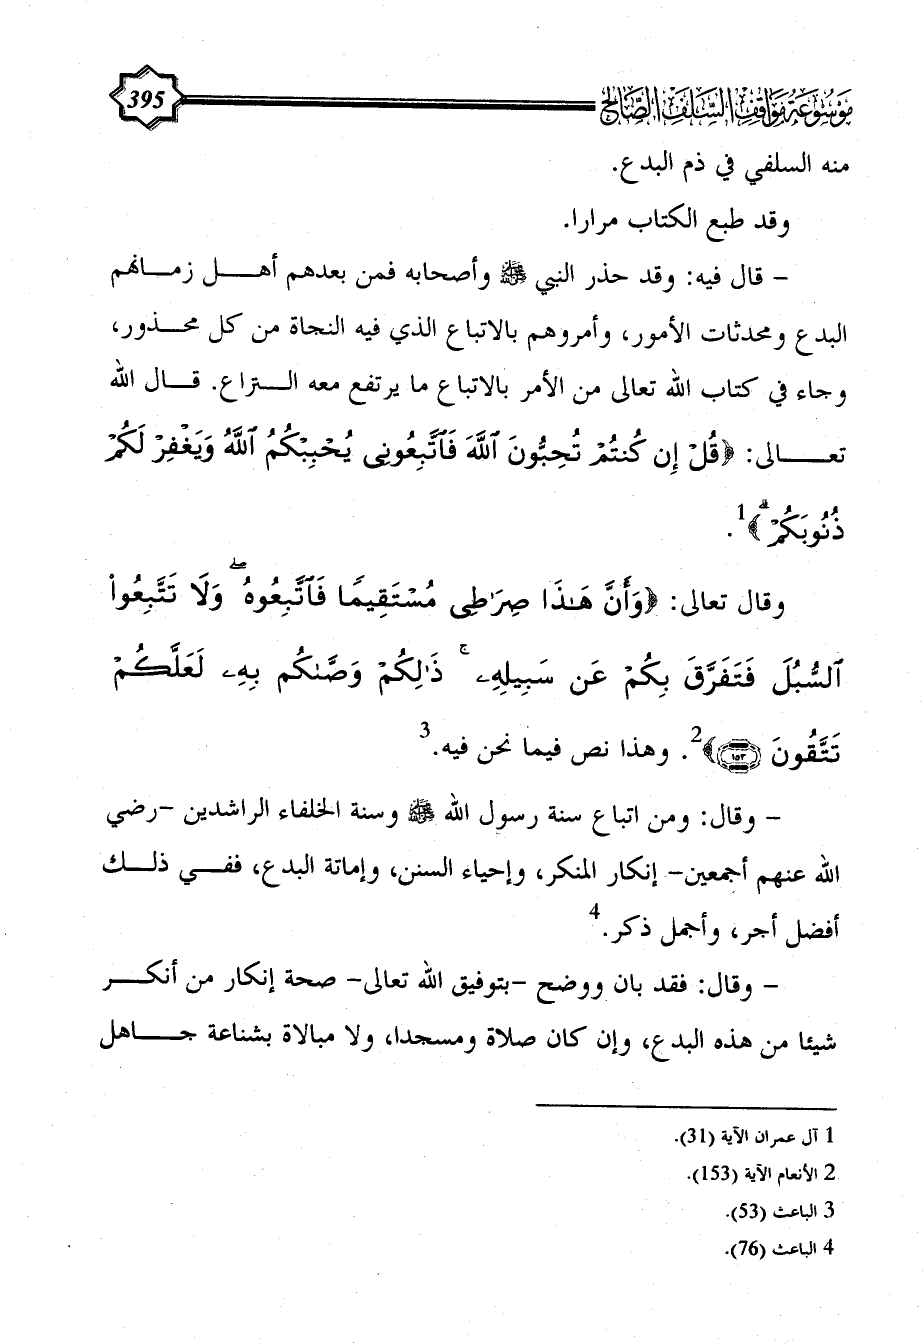 395
موسوعة مواقف السلف الصالح
منه السلفي في ذم البدع.
وقد طبع الكتاب مرارا.
- قال فيه: وقد حذر النبي ﷺ وأصحابه فمن بعدهم أهـــل زمـــانهم
البدع ومحدثات الأمور، وأمروهم بالاتباع الذي فيه النجاة من كل محـــذور،
وجاء في كتاب الله تعالى من الأمر بالاتباع ما يرتفع معه الـــنزاع. قـــال الله
تعـــــالى: ﴿قُلْ إِن كُنتُمْ تُحِبُّونَ ٱللَّهَ فَٱتَّبِعُونِى يُحْبِبْكُمُ ٱللَّهُ وَيَغْفِرْ لَكُمْ
ذُنُوبَكُمْ ۗ﴾1.
وقال تعالى: ﴿وَأَنَّ هَـٰذَا صِرَٰطِى مُسْتَقِيمًا فَٱتَّبِعُوهُ ۖ وَلَا تَتَّبِعُوا۟
ٱلسُّبُلَ فَتَفَرَّقَ بِكُمْ عَن سَبِيلِهِۦ ۚ ذَٰلِكُمْ وَصَّىٰكُم بِهِۦ لَعَلَّكُمْ
تَتَّقُونَ ١٥٣﴾2. وهذا نص فيما نحن فيه.3
- وقال: ومن اتباع سنة رسول الله ﷺ وسنة الخلفاء الراشدين -رضي
الله عنهم أجمعين- إنكار المنكر، وإحياء السنن، وإماتة البدع، ففـــي ذلـــك
أفضل أجر، وأجمل ذكر.4
- وقال: فقد بان ووضح -بتوفيق الله تعالى- صحة إنكار من أنكـــر
شيئا من هذه البدع، وإن كان صلاة ومسجدا، ولا مبالاة بشناعة جـــاهل
1 آل عمران الآية (31).
2 الأنعام الآية (153).
3 الباعث (53).
4 الباعث (76).